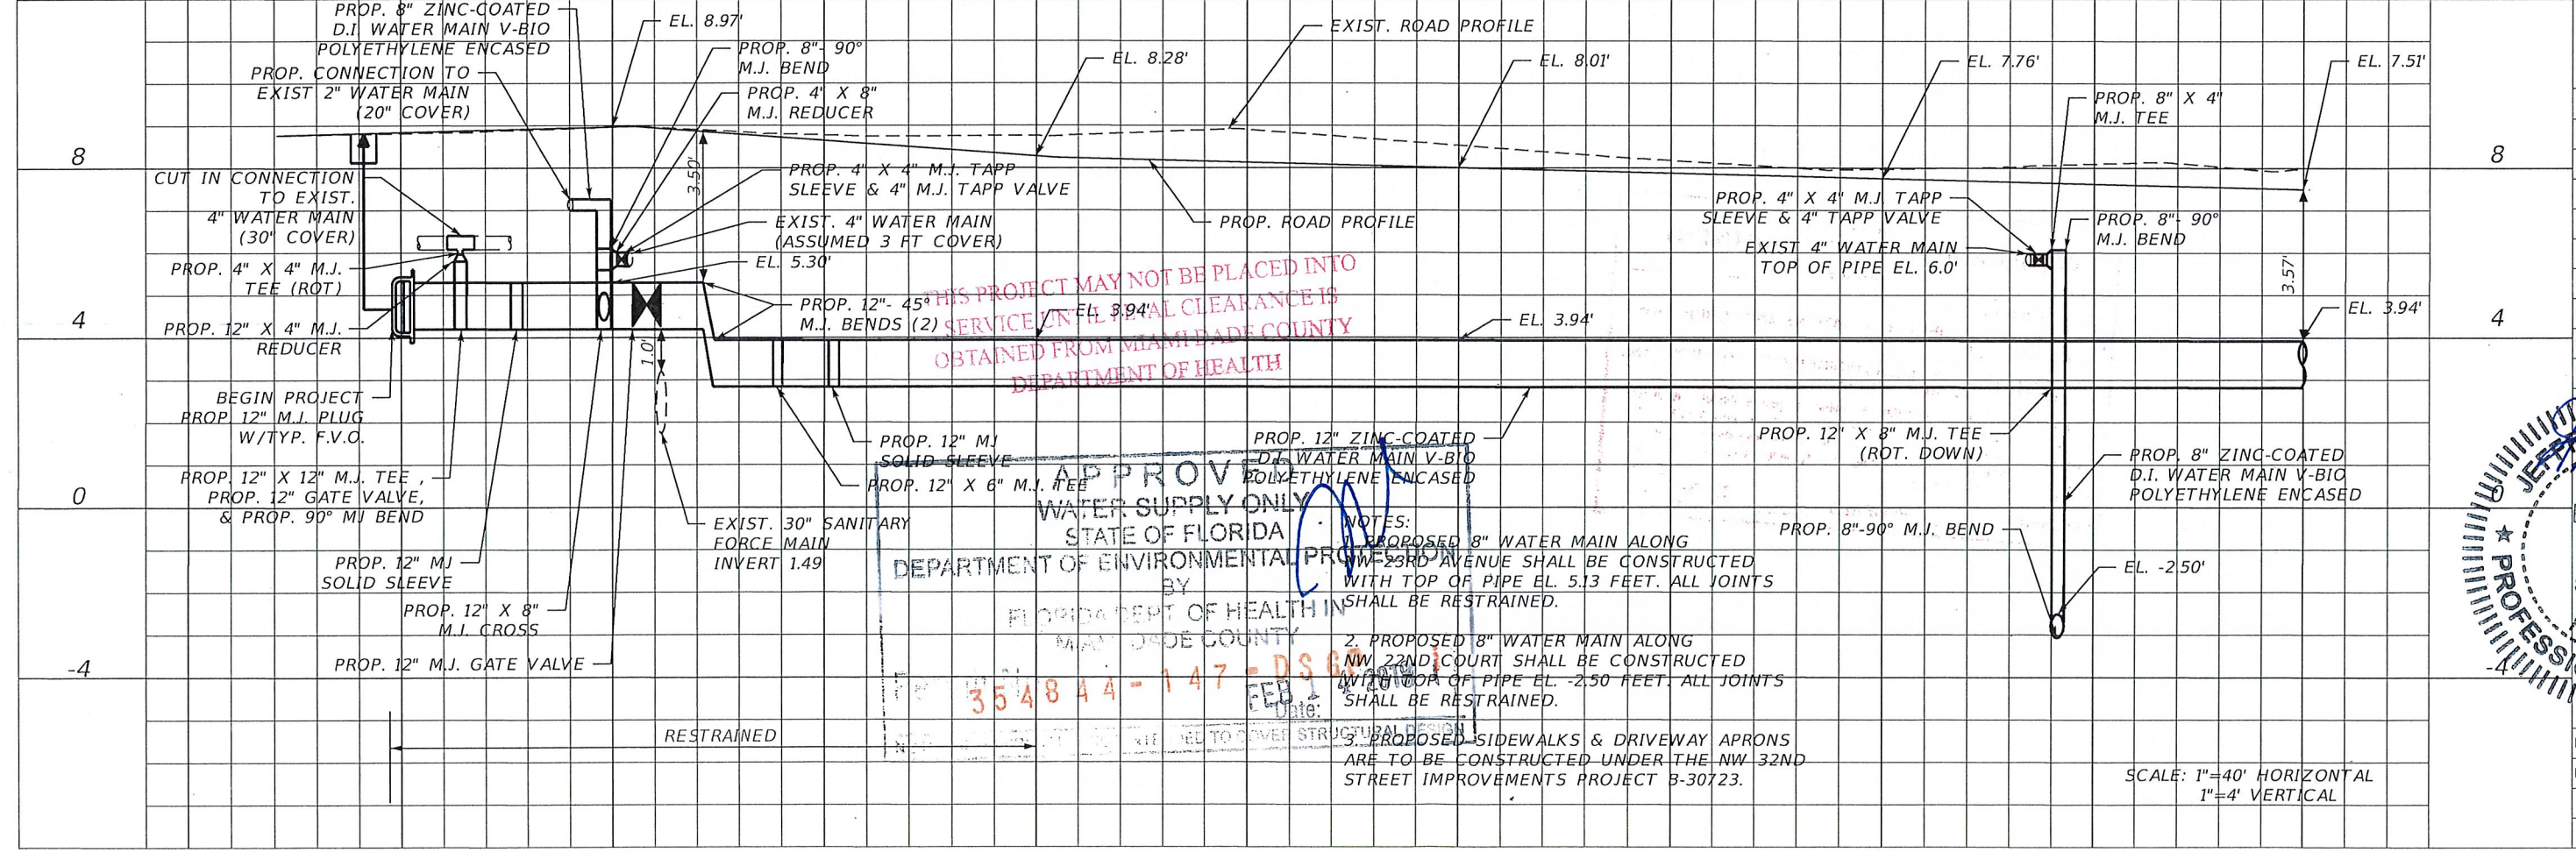 PROP. 8" ZINC-COATED
D.I. WATER MAIN V-BIO
POLYETHYLENE ENCASED
EL. 8.97'
PROP. CONNECTION TO
EXIST 2" WATER MAIN
(20" COVER)
PROP. 8"- 90°
M.J. BEND
PROP. 4" X 8"
M.J. REDUCER
EL. 8.28'
EXIST. ROAD PROFILE
EL. 8.01'
EL. 7.76'
EL. 7.51'
PROP. 8" X 4"
M.J. TEE
8
8
CUT IN CONNECTION
TO EXIST.
4" WATER MAIN
(30" COVER)
3.50'
PROP. 4" X 4" M.J. TAPP
SLEEVE & 4" M.J. TAPP VALVE
EXIST. 4" WATER MAIN
(ASSUMED 3 FT COVER)
EL. 5.30'
PROP. ROAD PROFILE
PROP. 4" X 4" M.J. TAPP
SLEEVE & 4" TAPP VALVE
EXIST 4" WATER MAIN
TOP OF PIPE EL. 6.0'
PROP. 8"- 90°
M.J. BEND
3.57'
PROP. 4" X 4" M.J.
TEE (ROT)
PROP. 12" X 4" M.J.
REDUCER
PROP. 12"- 45°
M.J. BENDS (2)
EL. 3.94'
EL. 3.94'
EL. 3.94'
THIS PROJECT MAY NOT BE PLACED INTO
SERVICE UNTIL FINAL CLEARANCE IS
OBTAINED FROM MIAMI-DADE COUNTY
DEPARTMENT OF HEALTH
4
4
1.0'
BEGIN PROJECT
PROP. 12" M.J. PLUG
W/TYP. F.V.O.
PROP. 12" X 12" M.J. TEE ,
PROP. 12" GATE VALVE,
& PROP. 90° MJ BEND
PROP. 12" MJ
SOLID SLEEVE
PROP. 12" X 8"
M.J. CROSS
PROP. 12" M.J. GATE VALVE
PROP. 12" MJ
SOLID SLEEVE
PROP. 12" X 6" M.J. TEE
EXIST. 30" SANITARY
FORCE MAIN
INVERT 1.49
PROP. 12" ZINC-COATED
D.I. WATER MAIN V-BIO
POLYETHYLENE ENCASED
PROP. 12" X 8" M.J. TEE
(ROT. DOWN)
PROP. 8" ZINC-COATED
D.I. WATER MAIN V-BIO
POLYETHYLENE ENCASED
0
0
PROP. 8"-90° M.J. BEND
EL. -2.50'
APPROVED
WATER SUPPLY ONLY
STATE OF FLORIDA
DEPARTMENT OF ENVIRONMENTAL PROTECTION
BY
FLORIDA DEPT OF HEALTH IN
MIAMI DADE COUNTY
354844-147-DSGP
FEB 14
Date:
TO COVER STRUCTURAL DESIGN
NOTES:
1. PROPOSED 8" WATER MAIN ALONG
NW 23RD AVENUE SHALL BE CONSTRUCTED
WITH TOP OF PIPE EL. 5.13 FEET. ALL JOINTS
SHALL BE RESTRAINED.
2. PROPOSED 8" WATER MAIN ALONG
NW 22ND COURT SHALL BE CONSTRUCTED
WITH TOP OF PIPE EL. -2.50 FEET. ALL JOINTS
SHALL BE RESTRAINED.
3. PROPOSED SIDEWALKS & DRIVEWAY APRONS
ARE TO BE CONSTRUCTED UNDER THE NW 32ND
STREET IMPROVEMENTS PROJECT B-30723.
-4
-4
RESTRAINED
SCALE: 1"=40' HORIZONTAL
1"=4' VERTICAL